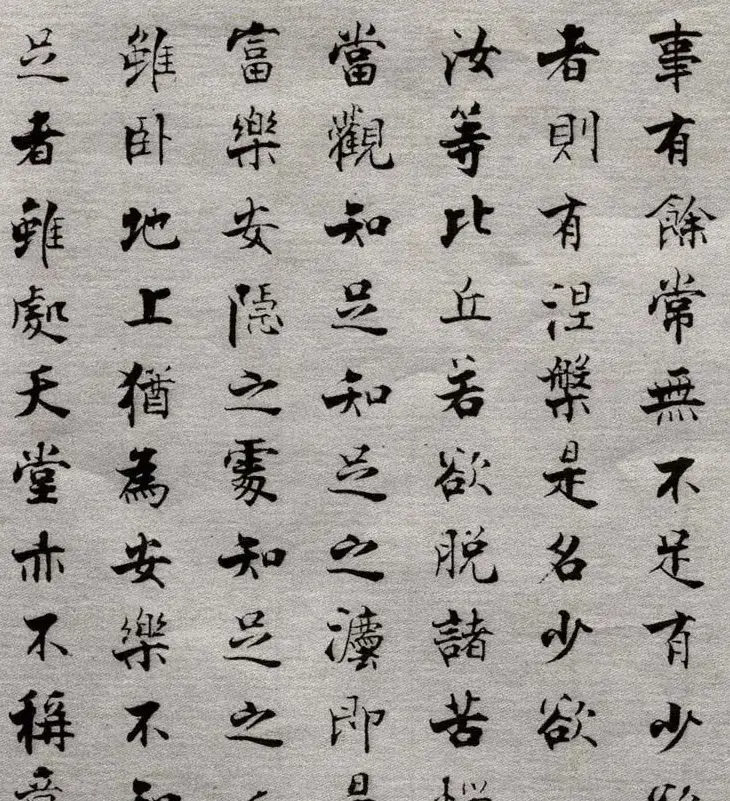 事有餘常無不足有少
者則有涅槃是名少欲
汝等比丘若欲脱諸苦
當觀知足知足之灋即
富樂安隱之處知足之
雖卧地上猶為安樂不
足者雖處天堂亦不稱